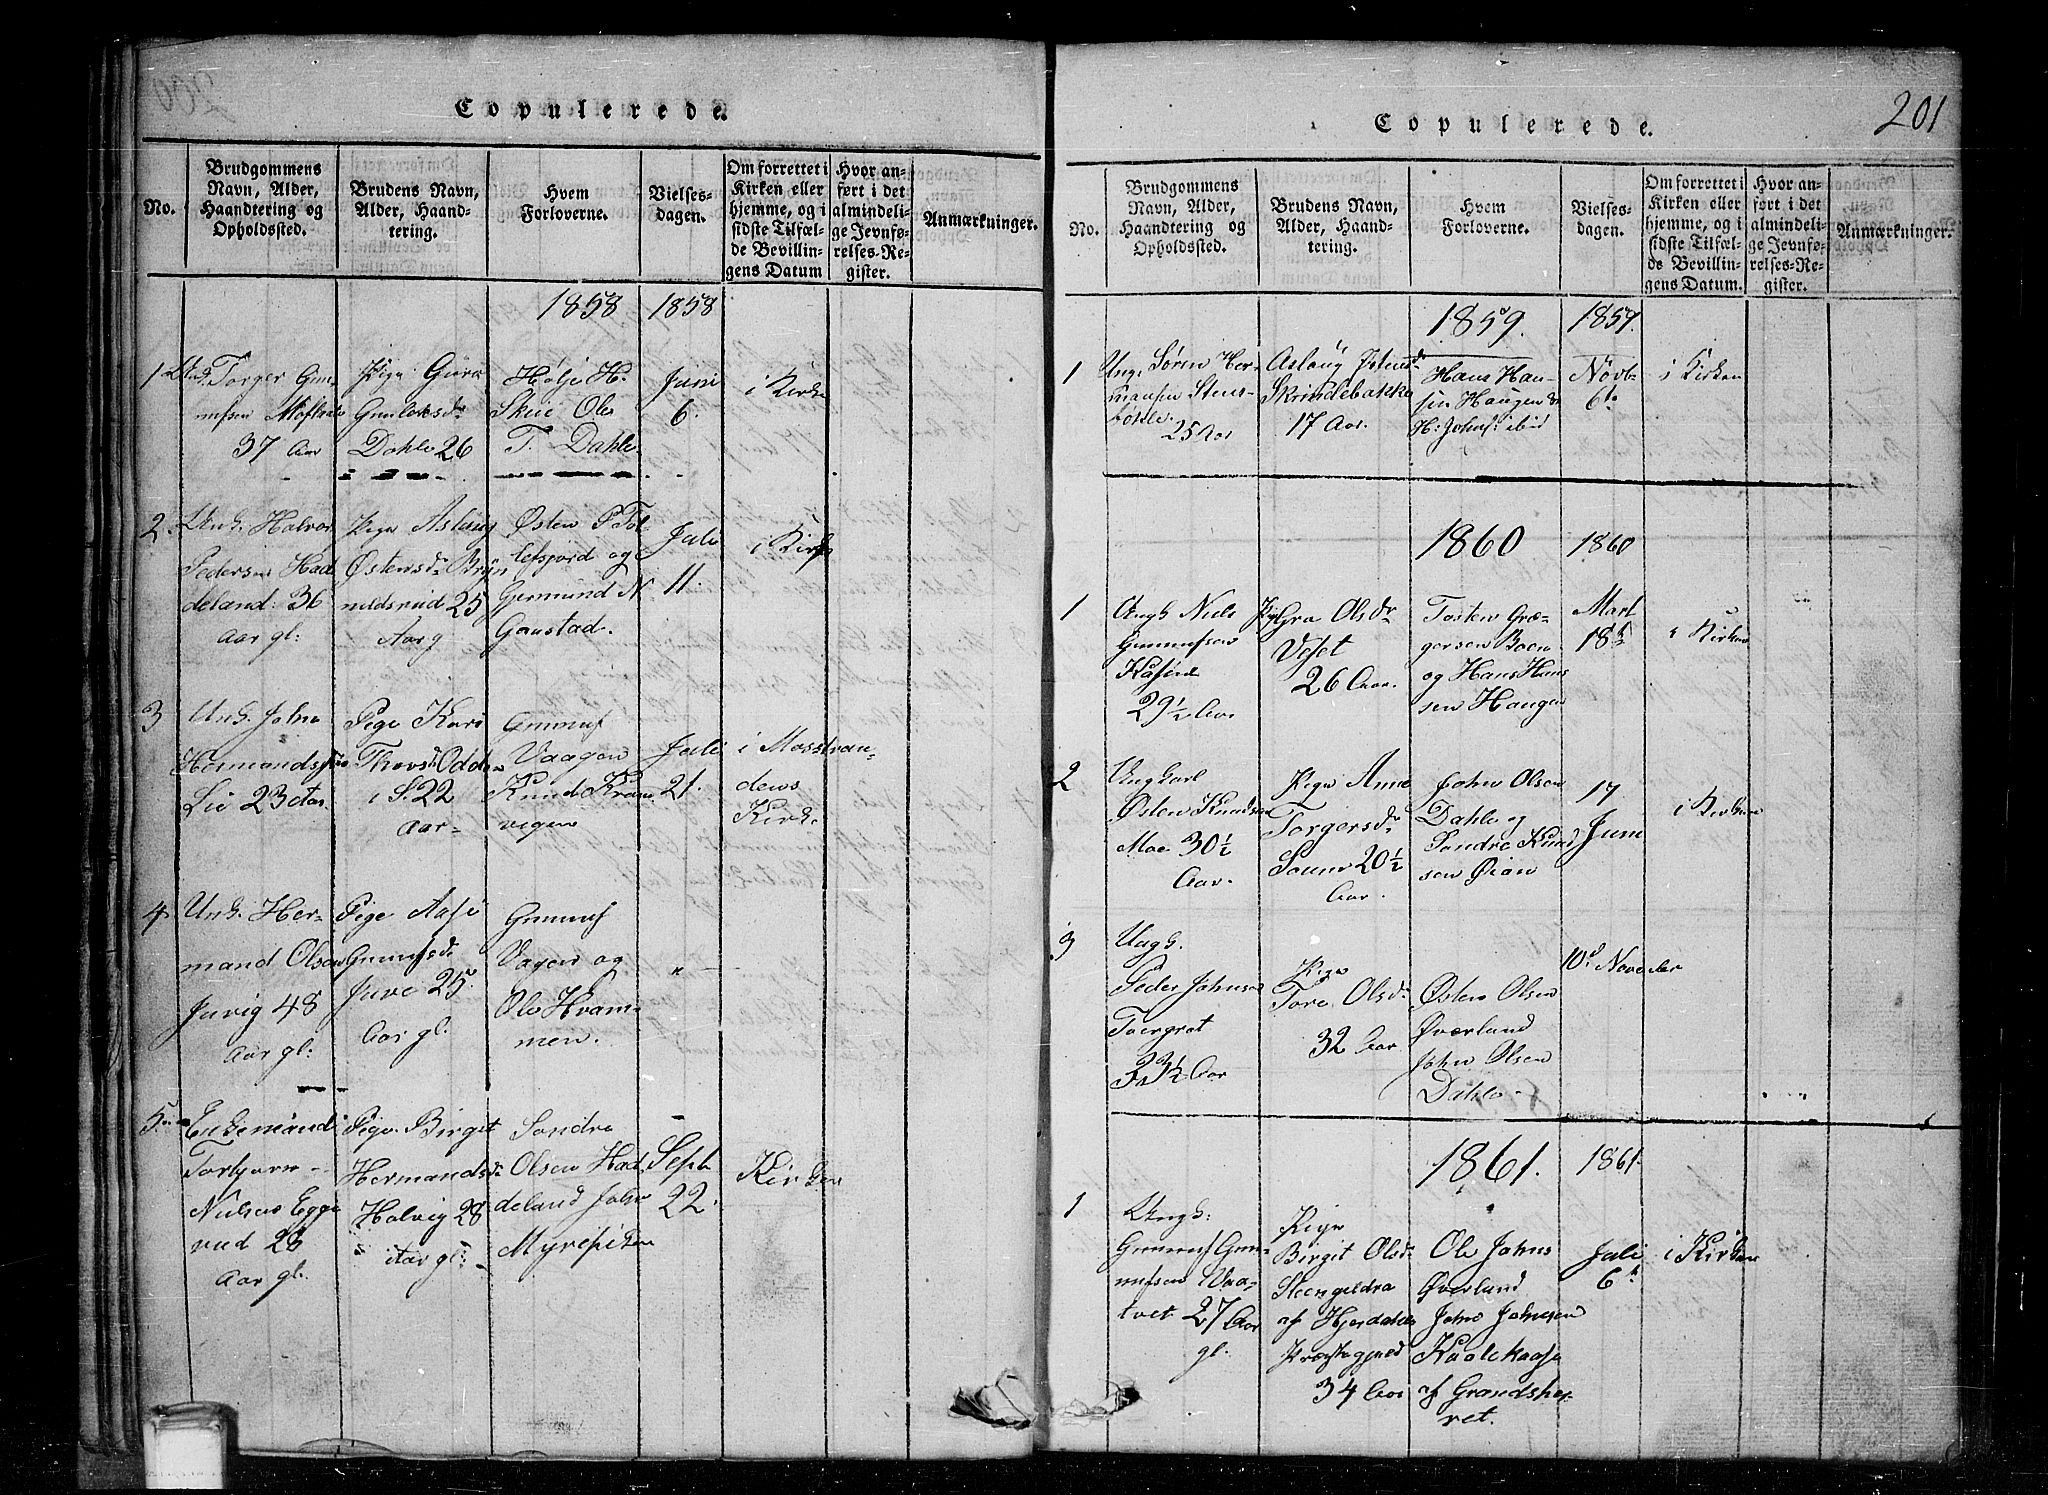 Copulerede.
No.
Brudgommens
Navn, Alder,
Haandtering og
Opholdssted.
Brudens Navn,
Alder, Haand-
tering.
Hvem
Forloverne.
Vielses-
dagen.
Om forrettet i
Kirken eller
hjemme, og i
sidste Tilfæl-
de Bevillin-
gens Datum
Hvor an-
ført i det
almindeli-
ge Jevnfø-
relses-Re-
gister.
Anmærkninger.
1858
1858
1
Torger Gun-
37 Aar
Pige
Dahle 26
Skeie Ole
T. Dahle
Juni
6.
i Kirke
2.
Ungk. Halvor
Pedersen Had
deland 36
Aar gl:
Pige Aslaug
Østensdr
25
Aar g
Østen P
og
Germund N
Gaustad.
Juli
11.
3
Ungk. John
Lie 23 Aar
Pige Kari
22
Aar-
Gunnuf
Vaagen
Knud Kram
vigen
Juli
21.
i Mosstran-
dens
Kirke
4
Ungk. Her-
mand Olsen
Juvig 48
Aar gl:
Pige Aase
Juve 25
Aar gl:
Gunnuf
Vagen og
Ole Kram-
men.
5
Enkemand
Torbjørn
Nielsen Egge
rud 28
Aar gl.
Pige Birget
Hermandsdr
Holvig 28
Aar gl:
Sondre
Olsen Had
deland John
Sept
22.
Kirken
201
Copulerede.
No.
Brudgommens
Navn, Alder,
Haandtering og
Opholdssted.
Brudens Navn,
Alder, Haand-
tering.
Hvem
Forloverne.
Vielses-
dagen.
Om forrettet i
Kirken eller
hjemme, og i
sidste Tilfæl-
de Bevillin-
gens Datum.
Hvor an-
ført i det
almindeli-
ge Jevnfø-
relses-Re-
gister.
Anmærkninger.
1859.
1859.
1
Ung. Søren Her-
mansen
25 Aar
Aslaug
Skrindebakke
17 Aar.
Hans Han-
sen Haugen
Novb
6te
i Kirken
1860
1860
1
Ungk Niels
Gunnufsen
29½ Aar
Gro Olsdr
26 Aar.
Tosten Græ-
gersen Boen
og Hans Hans
sen Haugen
Mart
18
i Kirken
2
Ungkarl
Østen Knudsen
Moe 30½
Aar.
Pige Anne
Torgersdr
20½
Aar.
John Olsen
Dahle og
Sondre Knud
sen Øian
17
Juni
i Kirken
3
Ungk.
Peder Johnsen
33½ Aar
Pige
Tore Olsdr
32 Aar
Østen Olsen
Øverland
John Olsen
Dahle
10de November
1861.
1861.
1
Ungk:
Gunnuf Gun-
nufsen Vaa-
tvet 27 Aar
gl.
Pige
Birgit Olsd
af Hjerdals
Præstegjeld
34 Aar
Ole Johns
Øverland
John Johnsen
af Grandshe-
red.
Juli
6
i Kirken